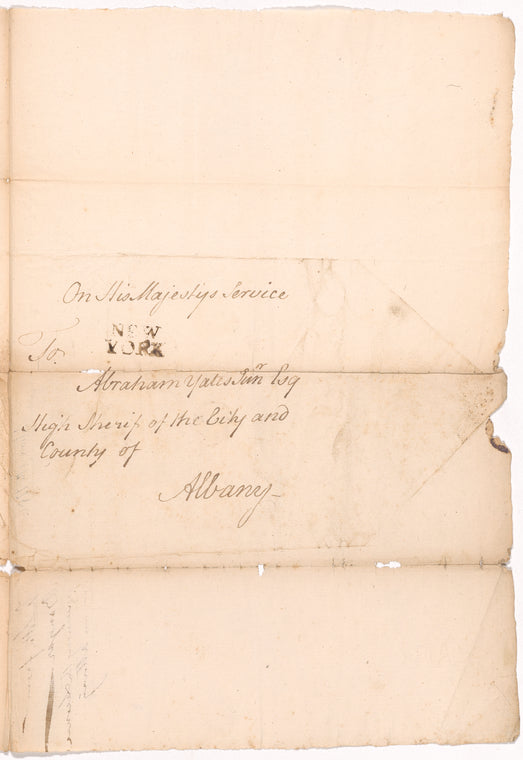 On His Majestys Service
NEW
YORK
To
Abraham Yates Junr Esq
High Sherif of the City and
County of
Albany